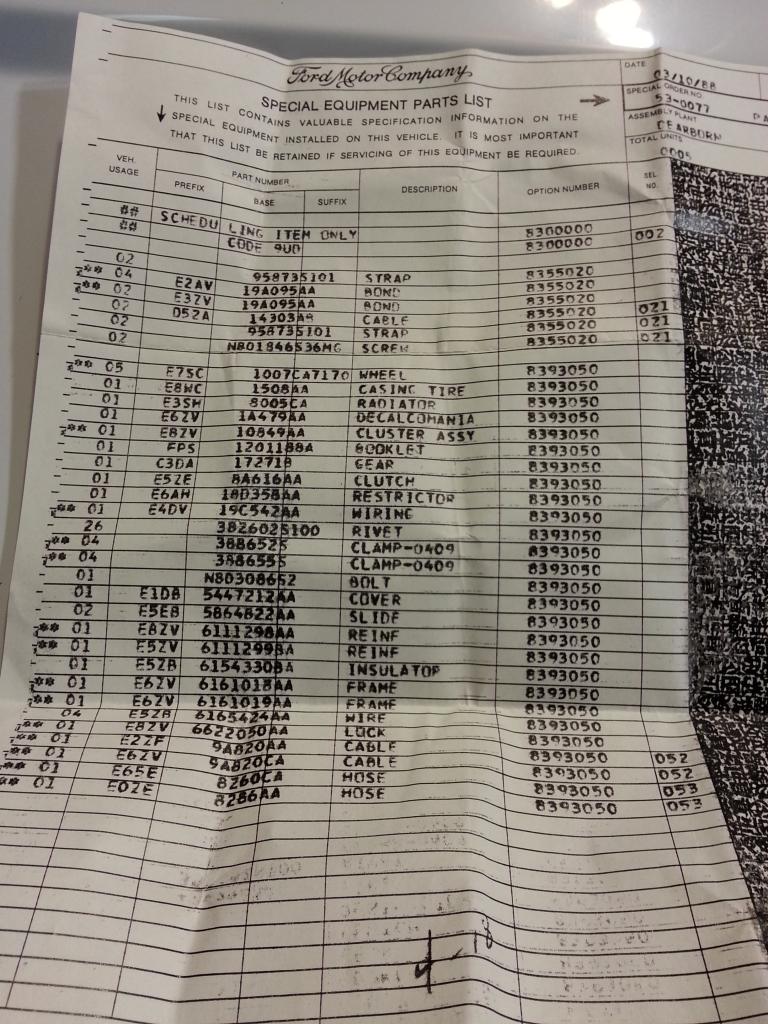 Ford Motor Company
SPECIAL EQUIPMENT PARTS LIST
THIS LIST CONTAINS VALUABLE SPECIFICATION INFORMATION ON THE
SPECIAL EQUIPMENT INSTALLED ON THIS VEHICLE. IT IS MOST IMPORTANT
THAT THIS LIST BE RETAINED IF SERVICING OF THIS EQUIPMENT BE REQUIRED.
DATE
03/10/88
SPECIAL ORDER NO.
53-0077
ASSEMBLY PLANT
DEARBORN
TOTAL UNITS
0005
VEH. USAGE PART NUMBER DESCRIPTION OPTION NUMBER SEL. NO.
PREFIX BASE SUFFIX
## SCHEDULING ITEM ONLY 8300000
## CODE 9UD 8300000 002
02 958735101 STRAP 8355020
** 04 E2AV 19A095AA BOND 8355020
** 02 E3ZV 19A095AA BOND 8355020
02 D52A 14303AA CABLE 8355020 021
02 958735101 STRAP 8355020 021
02 N801846S36MG SCREW 8355020 021
** 05 E7SC 1007CA7170 WHEEL 8393050
01 E8WC 1508AA CASING TIRE 8393050
01 E3SH 8005CA RADIATOR 8393050
01 E6ZV 1A479AA DECALCOMANIA 8393050
** 01 E8ZV 10849AA CLUSTER ASSY 8393050
01 FPS 1201188A BOOKLET 8393050
01 C3DA 17271B GEAR 8393050
01 E5ZE 8A616AA CLUTCH 8393050
01 E6AH 18D358AA RESTRICTOR 8393050
** 01 E4DV 19C542AA WIRING 8393050
26 3826025100 RIVET 8393050
** 04 388652S CLAMP-0409 8393050
** 04 388655S CLAMP-0409 8393050
01 N80308652 BOLT 8393050
01 E1DB 5447212AA COVER 8393050
02 E5EB 5864822AA SLIDE 8393050
** 01 E8ZV 6111298AA REINF 8393050
** 01 E5ZV 6111299BA REINF 8393050
01 E5ZB 6154330BA INSULATOR 8393050
** 01 E6ZV 6161018AA FRAME 8393050
** 01 E6ZV 6161019AA FRAME 8393050
04 E5ZB 6165424AA WIRE 8393050
** 01 E8ZV 6622050AA LOCK 8393050
** 01 E2ZF 9A820AA CABLE 8393050
** 01 E6ZV 9A820CA CABLE 8393050 052
** 01 E65E 8260CA HOSE 8393050 052
** 01 E0ZE 8286AA HOSE 8393050 053
8393050 053